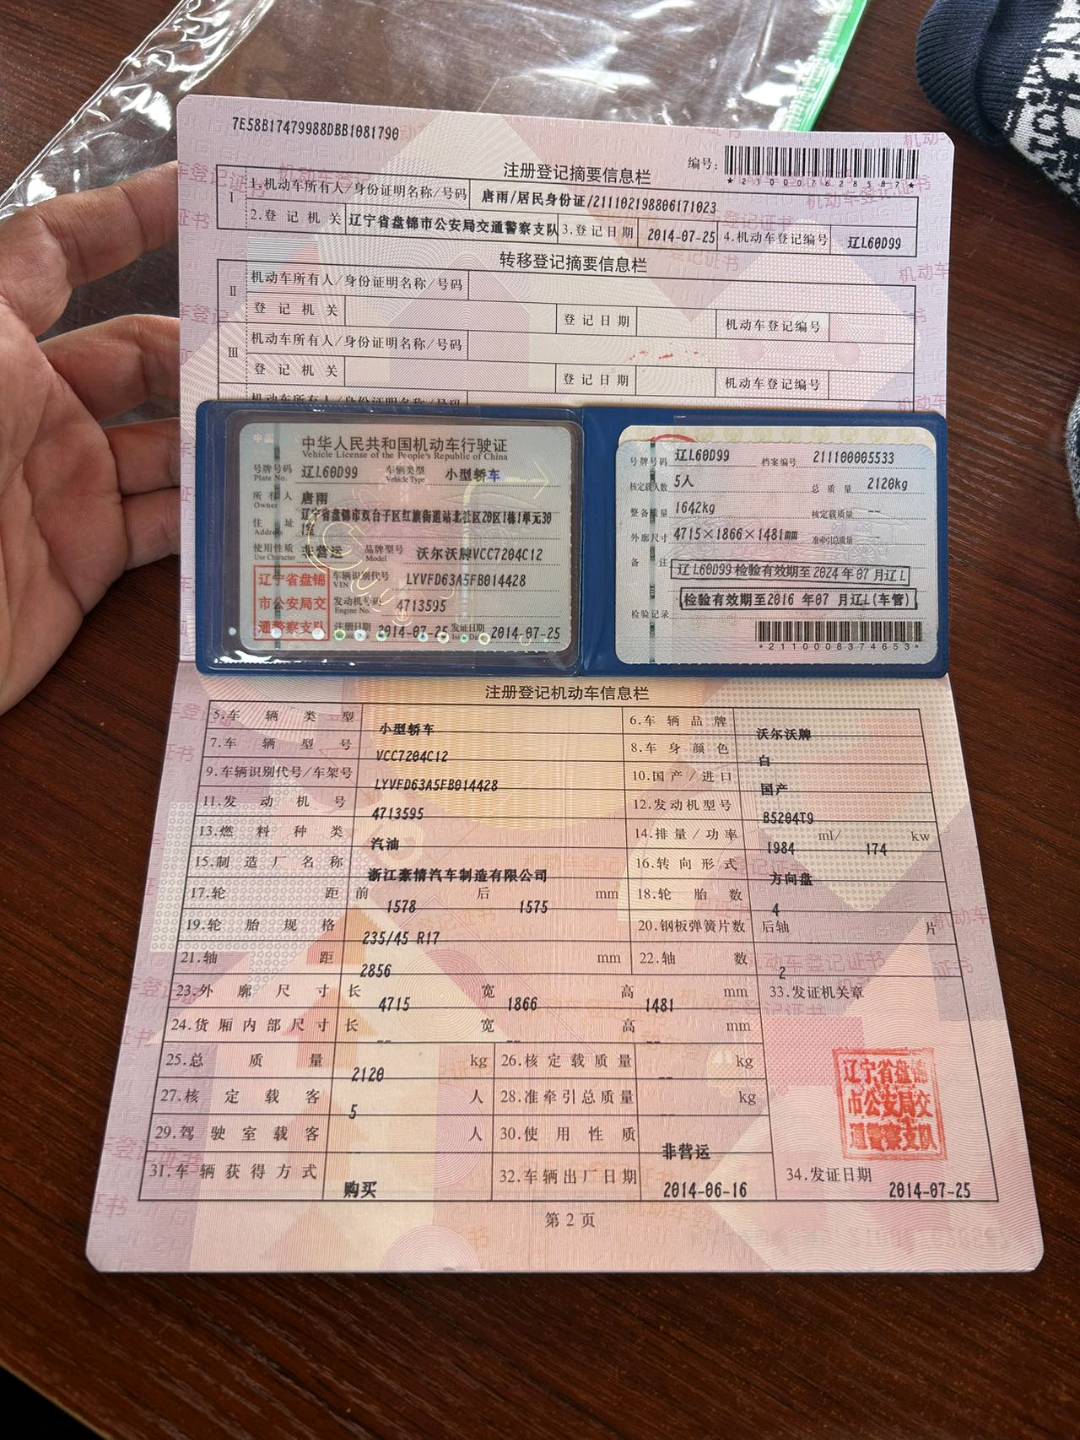 7E58B17479988DBB1081790
编号:
注册登记摘要信息栏
I 1.机动车所有人/身份证明名称/号码 唐雨/居民身份证/211102198806171023
2.登记机关 辽宁省盘锦市公安局交通警察支队 3.登记日期 2014-07-25 4.机动车登记编号 辽L60D99
转移登记摘要信息栏
II 机动车所有人/身份证明名称/号码
登记机关 登记日期 机动车登记编号
III 机动车所有人/身份证明名称/号码
登记机关 登记日期 机动车登记编号
中华人民共和国机动车行驶证
Vehicle License of the People's Republic of China
号牌号码 辽L60D99 车辆类型 小型轿车
Plate No. Vehicle Type
所有人 唐雨
Owner
住址 辽宁省盘锦市双台子区红旗街道站北社区20区1栋1单元30
Address 1室
使用性质 非营运 品牌型号 沃尔沃牌VCC7204C12
Use Character Model
辽宁省盘锦市公安局交通警察支队
车辆识别代号 LYVFD63A5FB014428
VIN
发动机号码 4713595
Engine No.
注册日期 2014-07-25 发证日期 2014-07-25
号牌号码 辽L60D99 档案编号 211100005533
核定载人数 5人 总质量 2120kg
整备质量 1642kg 核定载质量 --
外廓尺寸 4715×1866×1481mm 准牵引总质量 --
备注 辽L60D99 检验有效期至2024年07月辽L
检验有效期至2016 年07 月辽L(车管)
检验记录
*2110008374653*
注册登记机动车信息栏
5.车辆类型 小型轿车 6.车辆品牌 沃尔沃牌
7.车辆型号 VCC7204C12 8.车身颜色 白
9.车辆识别代号/车架号 LYVFD63A5FB014428 10.国产/进口 国产
11.发动机号 4713595 12.发动机型号 B5204T9
13.燃料种类 汽油 14.排量/功率 1984 ml/ 174 kw
15.制造厂名称 浙江豪情汽车制造有限公司 16.转向形式 方向盘
17.轮距 前 1578 后 1575 mm 18.轮胎数 4
19.轮胎规格 235/45 R17 20.钢板弹簧片数 后轴 片
21.轴距 2856 mm 22.轴数 2
23.外廓尺寸 长 4715 宽 1866 高 1481 mm 33.发证机关章
24.货厢内部尺寸 长 -- 宽 -- 高 -- mm
25.总质量 2120 kg 26.核定载质量 -- kg
27.核定载客 5 人 28.准牵引总质量 -- kg
29.驾驶室载客 人 30.使用性质 非营运
31.车辆获得方式 购买 32.车辆出厂日期 2014-06-16 34.发证日期 2014-07-25
辽宁省盘锦市公安局交通警察支队
第2页